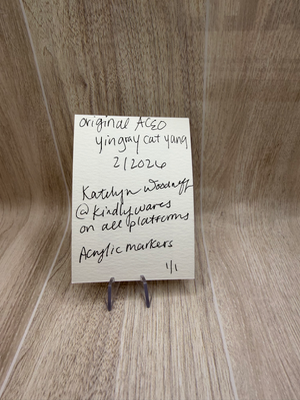 original ACEO
yingray cat yang
2/2026
Katelyn Woodruff
@kindlywares
on all platforms
Acrylic markers
1/1